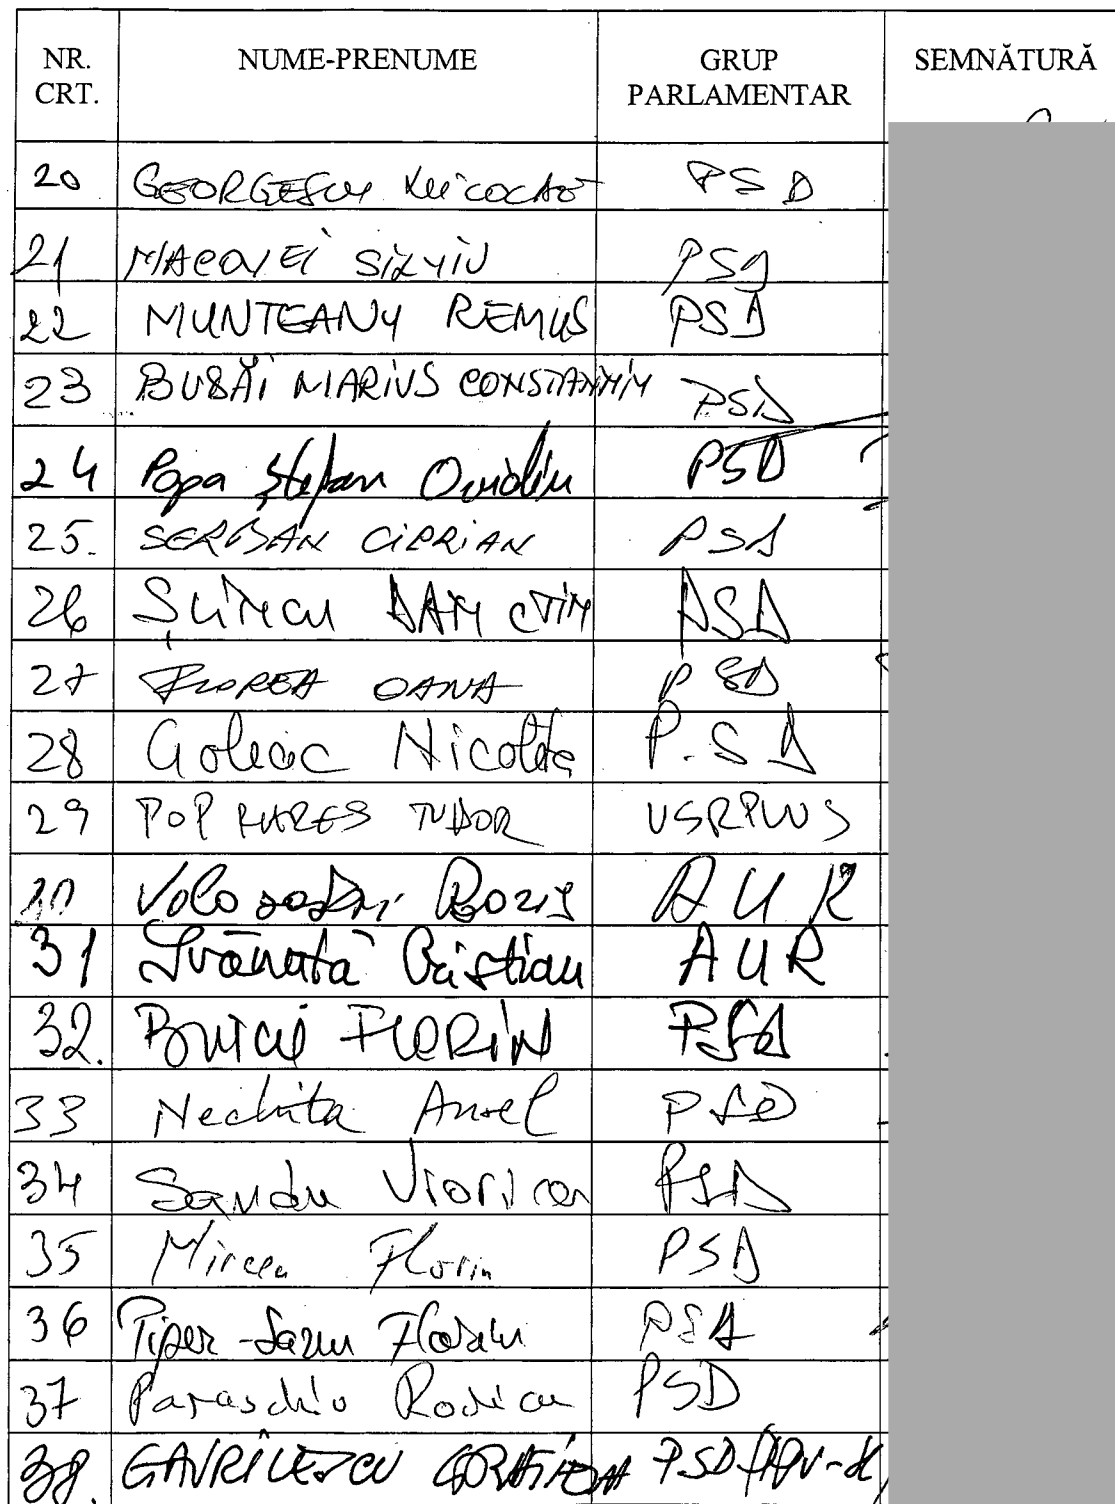 NR. CRT. NUME-PRENUME GRUP PARLAMENTAR SEMNĂTURĂ
20 GEORGESCU PSD
21 MACOVEI SILVIU PSD
22 MUNTEANU REMUS PSD
23 BUBĂI MARIUS CONSTANTIN PSD
24 Popa Ștefan Ovidiu PSD
25. SERBAN CIPRIAN PSD
26 Șlincu DAN CTIN PSD
27 FLOREA OANA PSD
28 Goleac Nicoleta P.SD
29 POP RARES TUDOR USRPLUS
30 Volosatâi Boris AUR
31 Ivănuță Cristian AUR
32. BUICU FLORIN PSD
33 Nechita Aurel PSD
34 Sandu Viorica PSD
35 Mircea Florin PSD
36 Tiper-Lazur Florin PSD
37 Paraschiv Rodica PSD
38. GAVRILESCU GRATIELA PSD